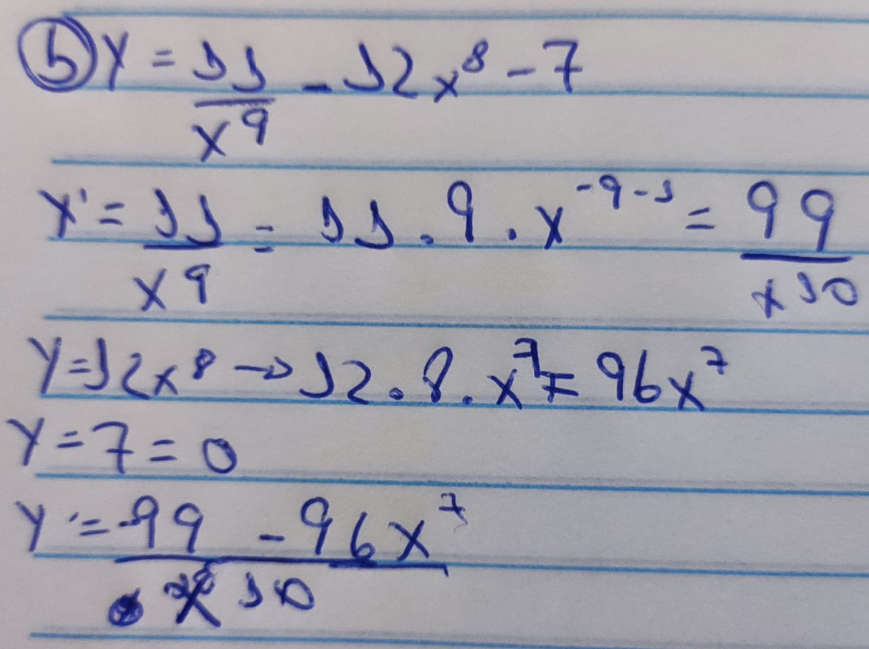 b) y = 11/x^9 - 12x^8 - 7
y' = 11/x^9 = 11 . 9 . x^-9-1 = 99/x^10
y = 12x^8 → 12 . 8 . x^7 = 96x^7
y = 7 = 0
y' = (-99 - 96x^7)/x^10